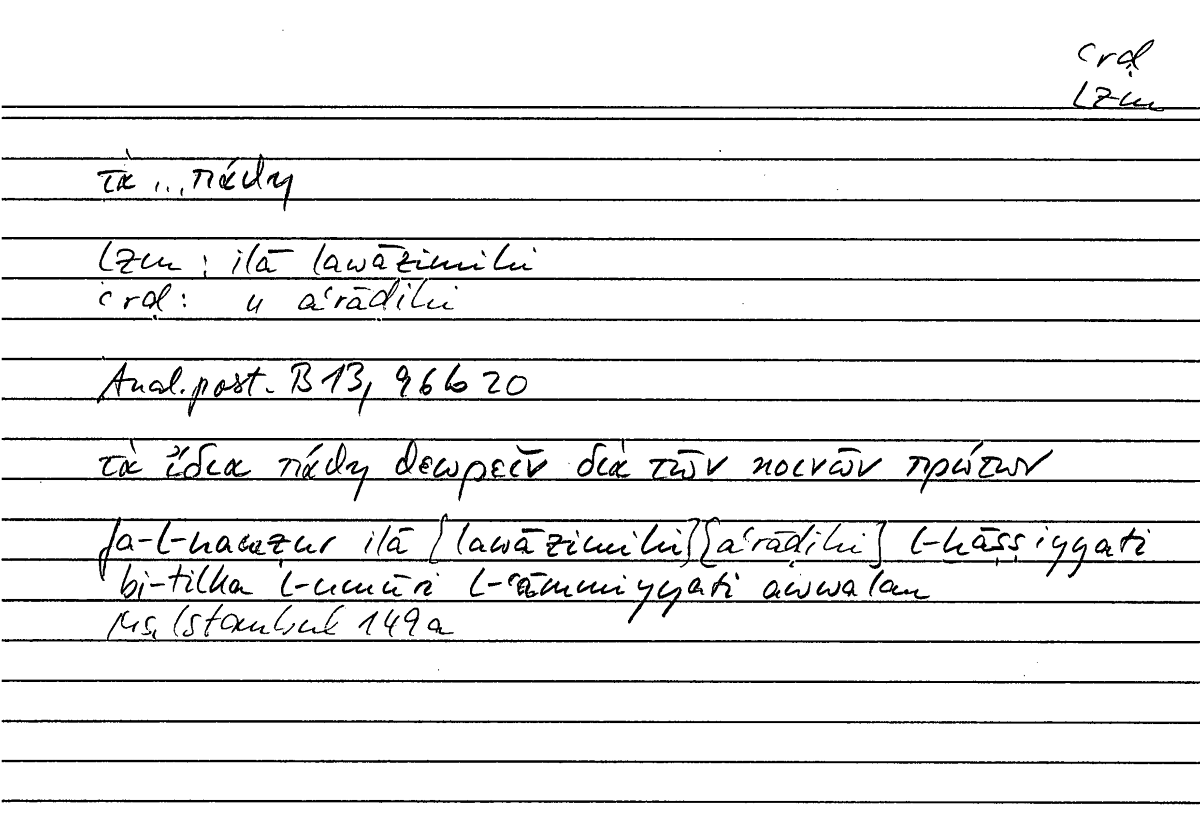 ʿrḍ
lzm
τὰ ... πάθη
lzm : ilā lawāzimihi
ʿrḍ : " aʿrāḍihi
Anal. post. B 13, 96b 20
τὰ ἴδια πάθη θεωρεῖν διὰ τῶν κοινῶν πρώτων
fa-l-nanẓur ilā [lawāzimihi] [aʿrāḍihi] l-ḫāṣṣiyyati
bi-tilka l-umūri l-ʿāmmiyyati awwalan
Ms. Istanbul 149a